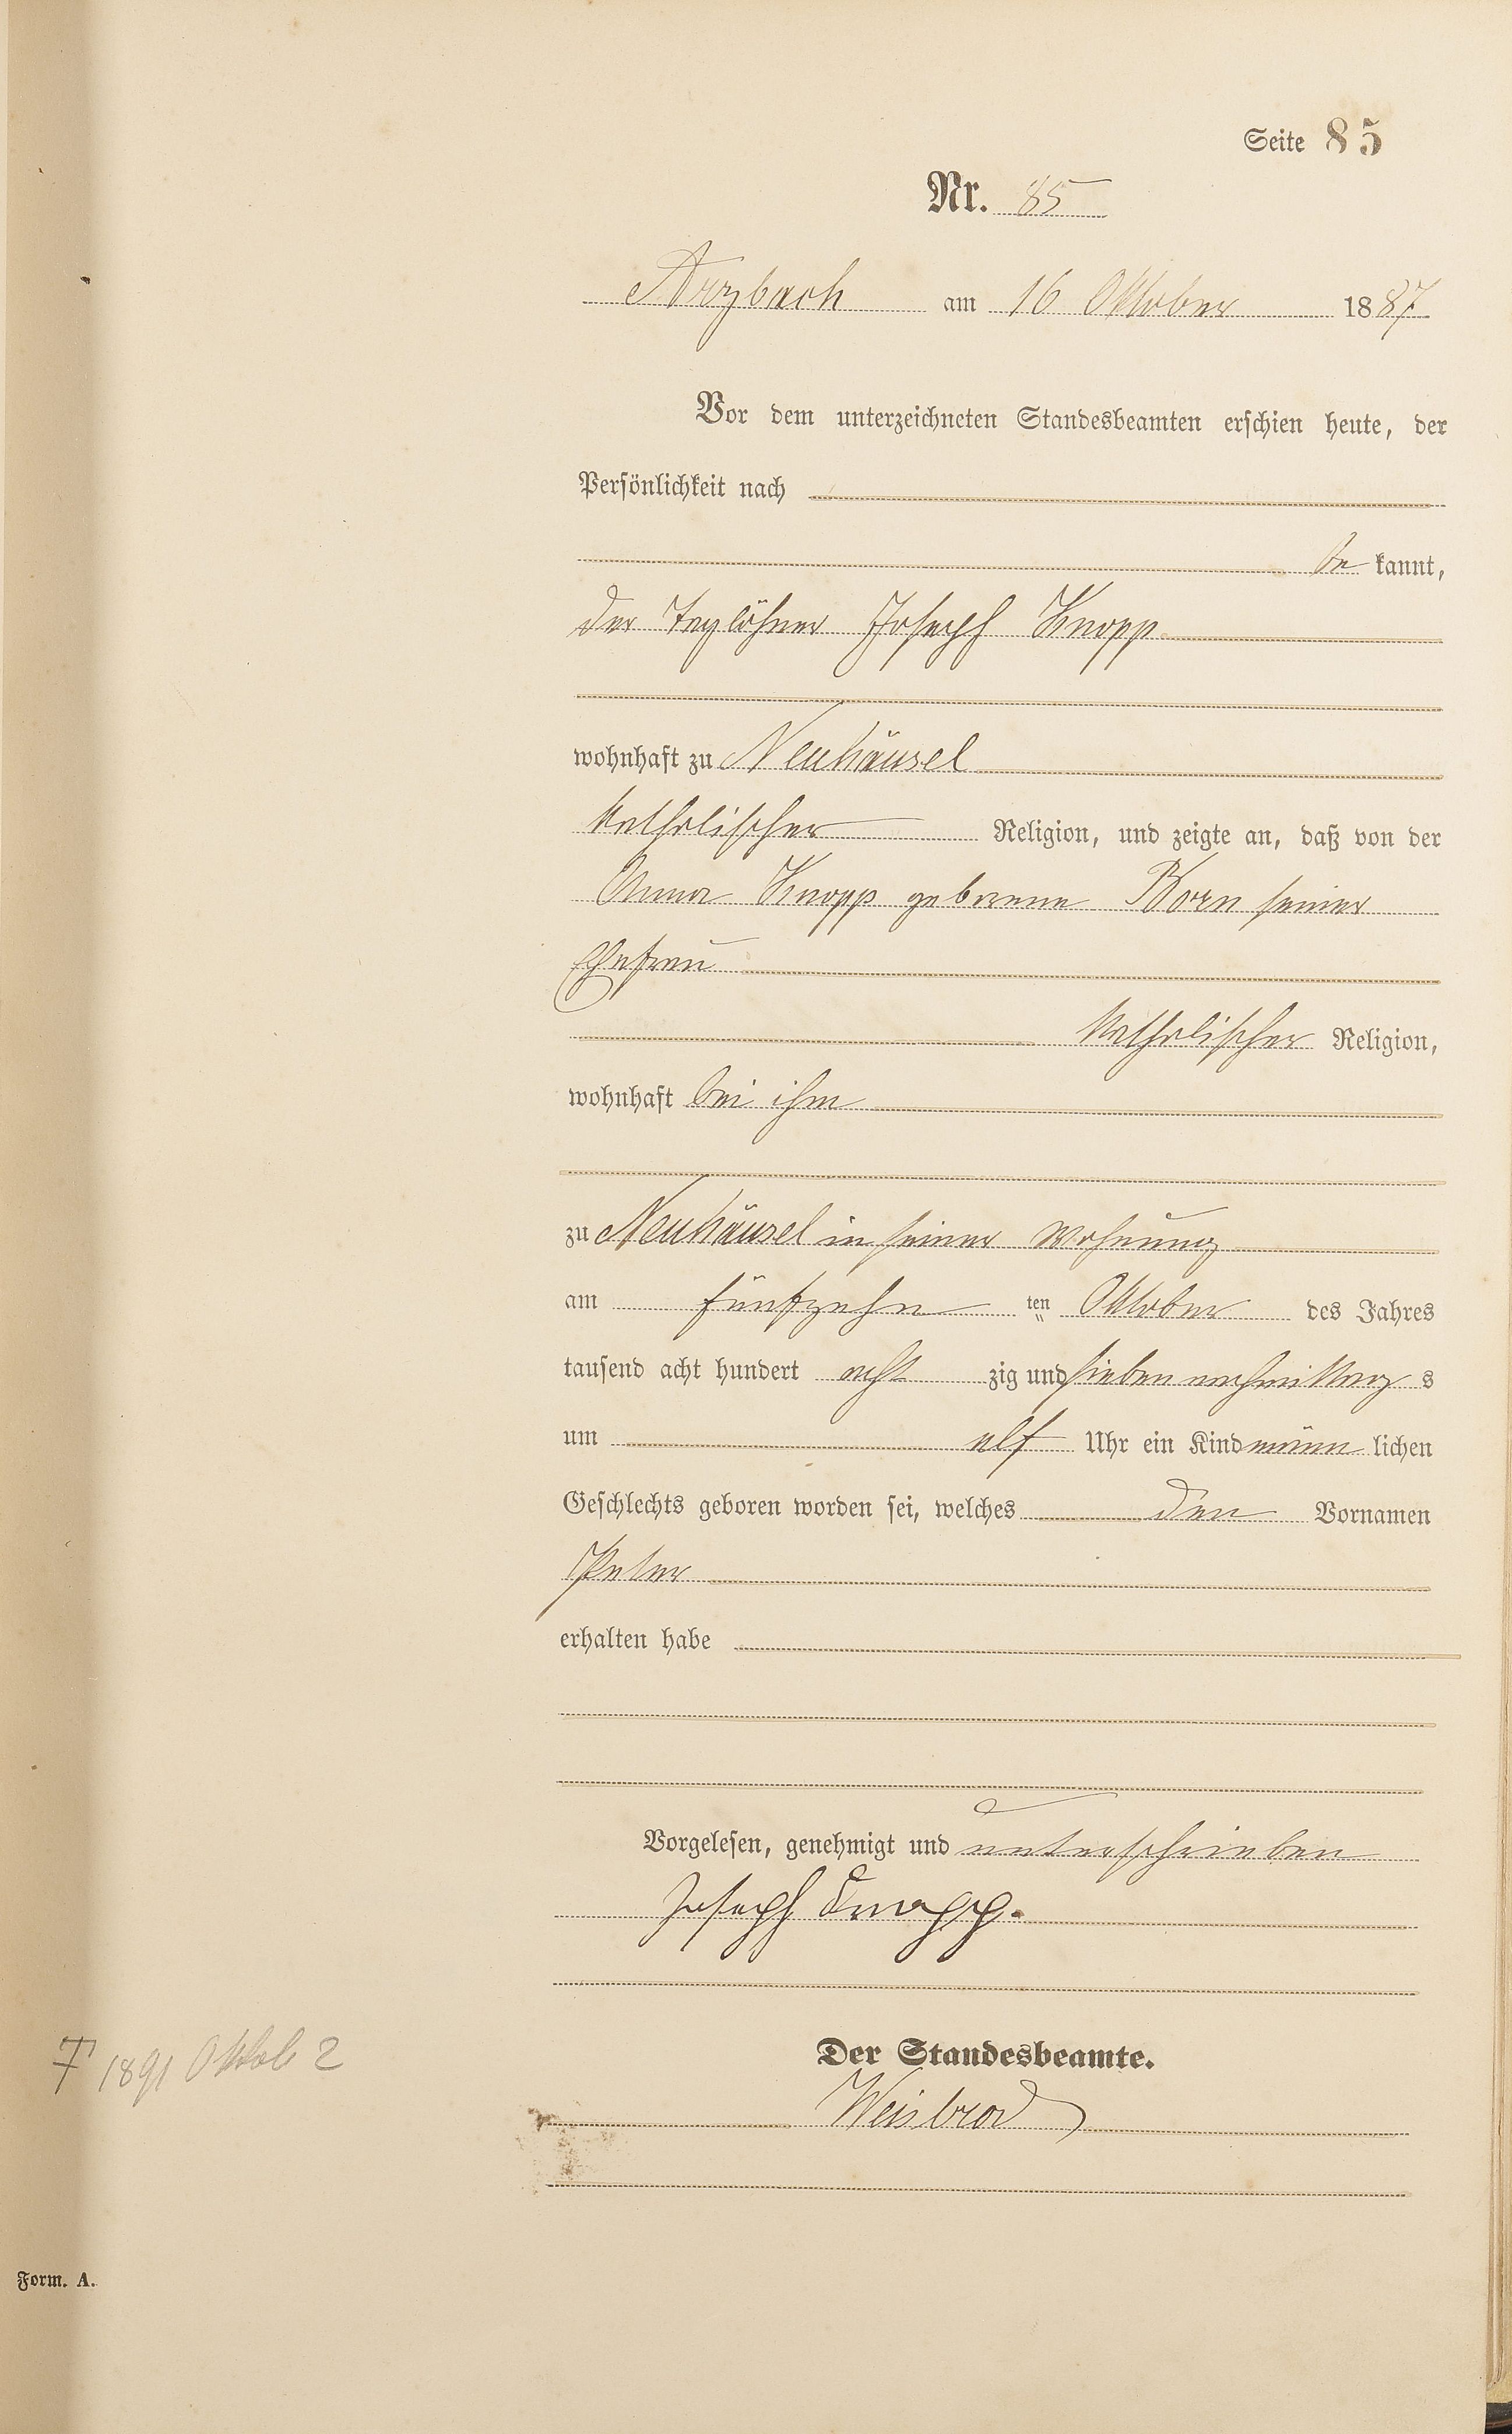 Seite 85
Nr. 85
Arzbach am 16 Oktober 1887
Vor dem unterzeichneten Standesbeamten erschien heute, der
Persönlichkeit nach
be kannt,
der Taglöhner Joseph Knopp
wohnhaft zu Neuhäusel
katholischer Religion, und zeigte an, daß von der
Anna Knopp geborene Korn seiner
Ehefrau
katholischer Religion,
wohnhaft bei ihm
zu Neuhäusel in seiner Wohnung
am fünfzehn ten Oktober des Jahres
tausend acht hundert acht zig und sieben nachmittag s
um elf Uhr ein Kind männ lichen
Geschlechts geboren worden sei, welches den Vornamen
Peter
erhalten habe
Vorgelesen, genehmigt und unterschrieben
Joseph Knopp.
† 1891 Oktob 2
Der Standesbeamte.
Weisbrod
Form. A.